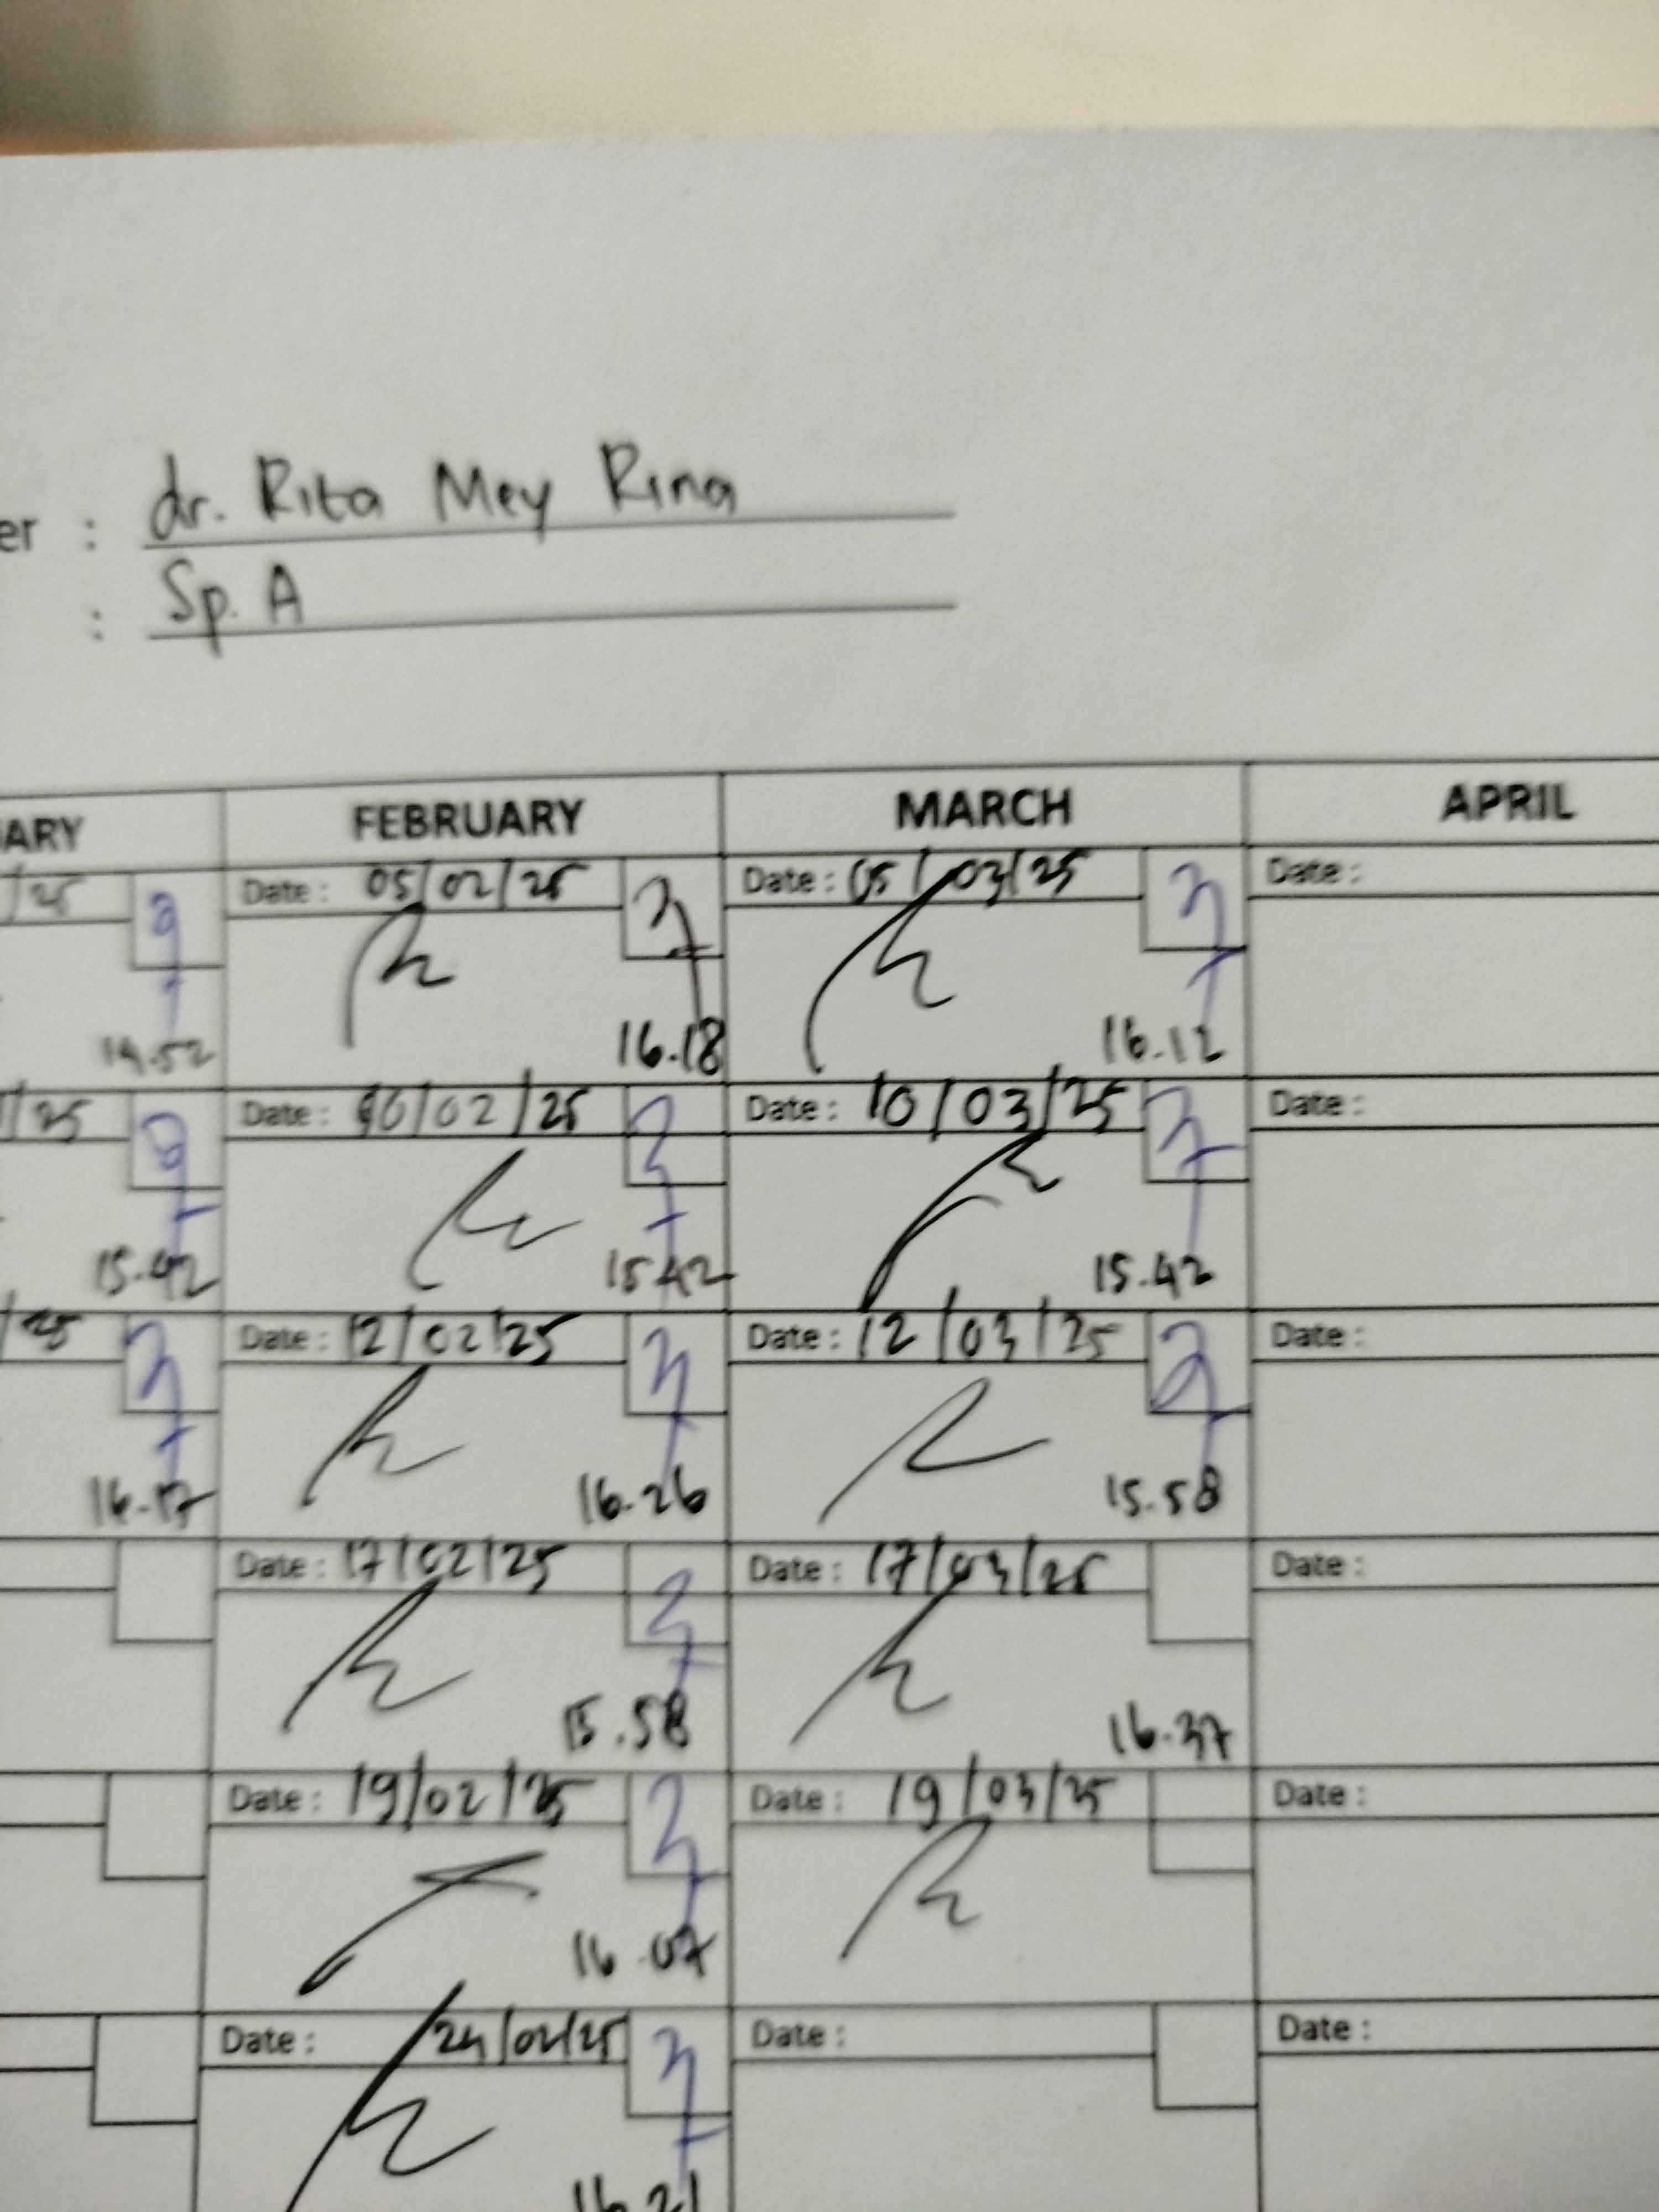 er : dr. Rita Mey Rina
: Sp. A
ARY FEBRUARY MARCH APRIL
/25 Date : 05/02/25 Date : 05/03/25 Date :
14.52 16.18 16.12
/25 Date : 10/02/25 Date : 10/03/25 Date :
15.42 15.42 15.42
/25 Date : 12/02/25 Date : 12/03/25 Date :
16.17 16.26 15.58
Date : 17/02/25 Date : 17/03/25 Date :
15.58 16.37
Date : 19/02/25 Date : 19/03/25 Date :
16.07
Date : 24/02/25 Date : Date :
16.21